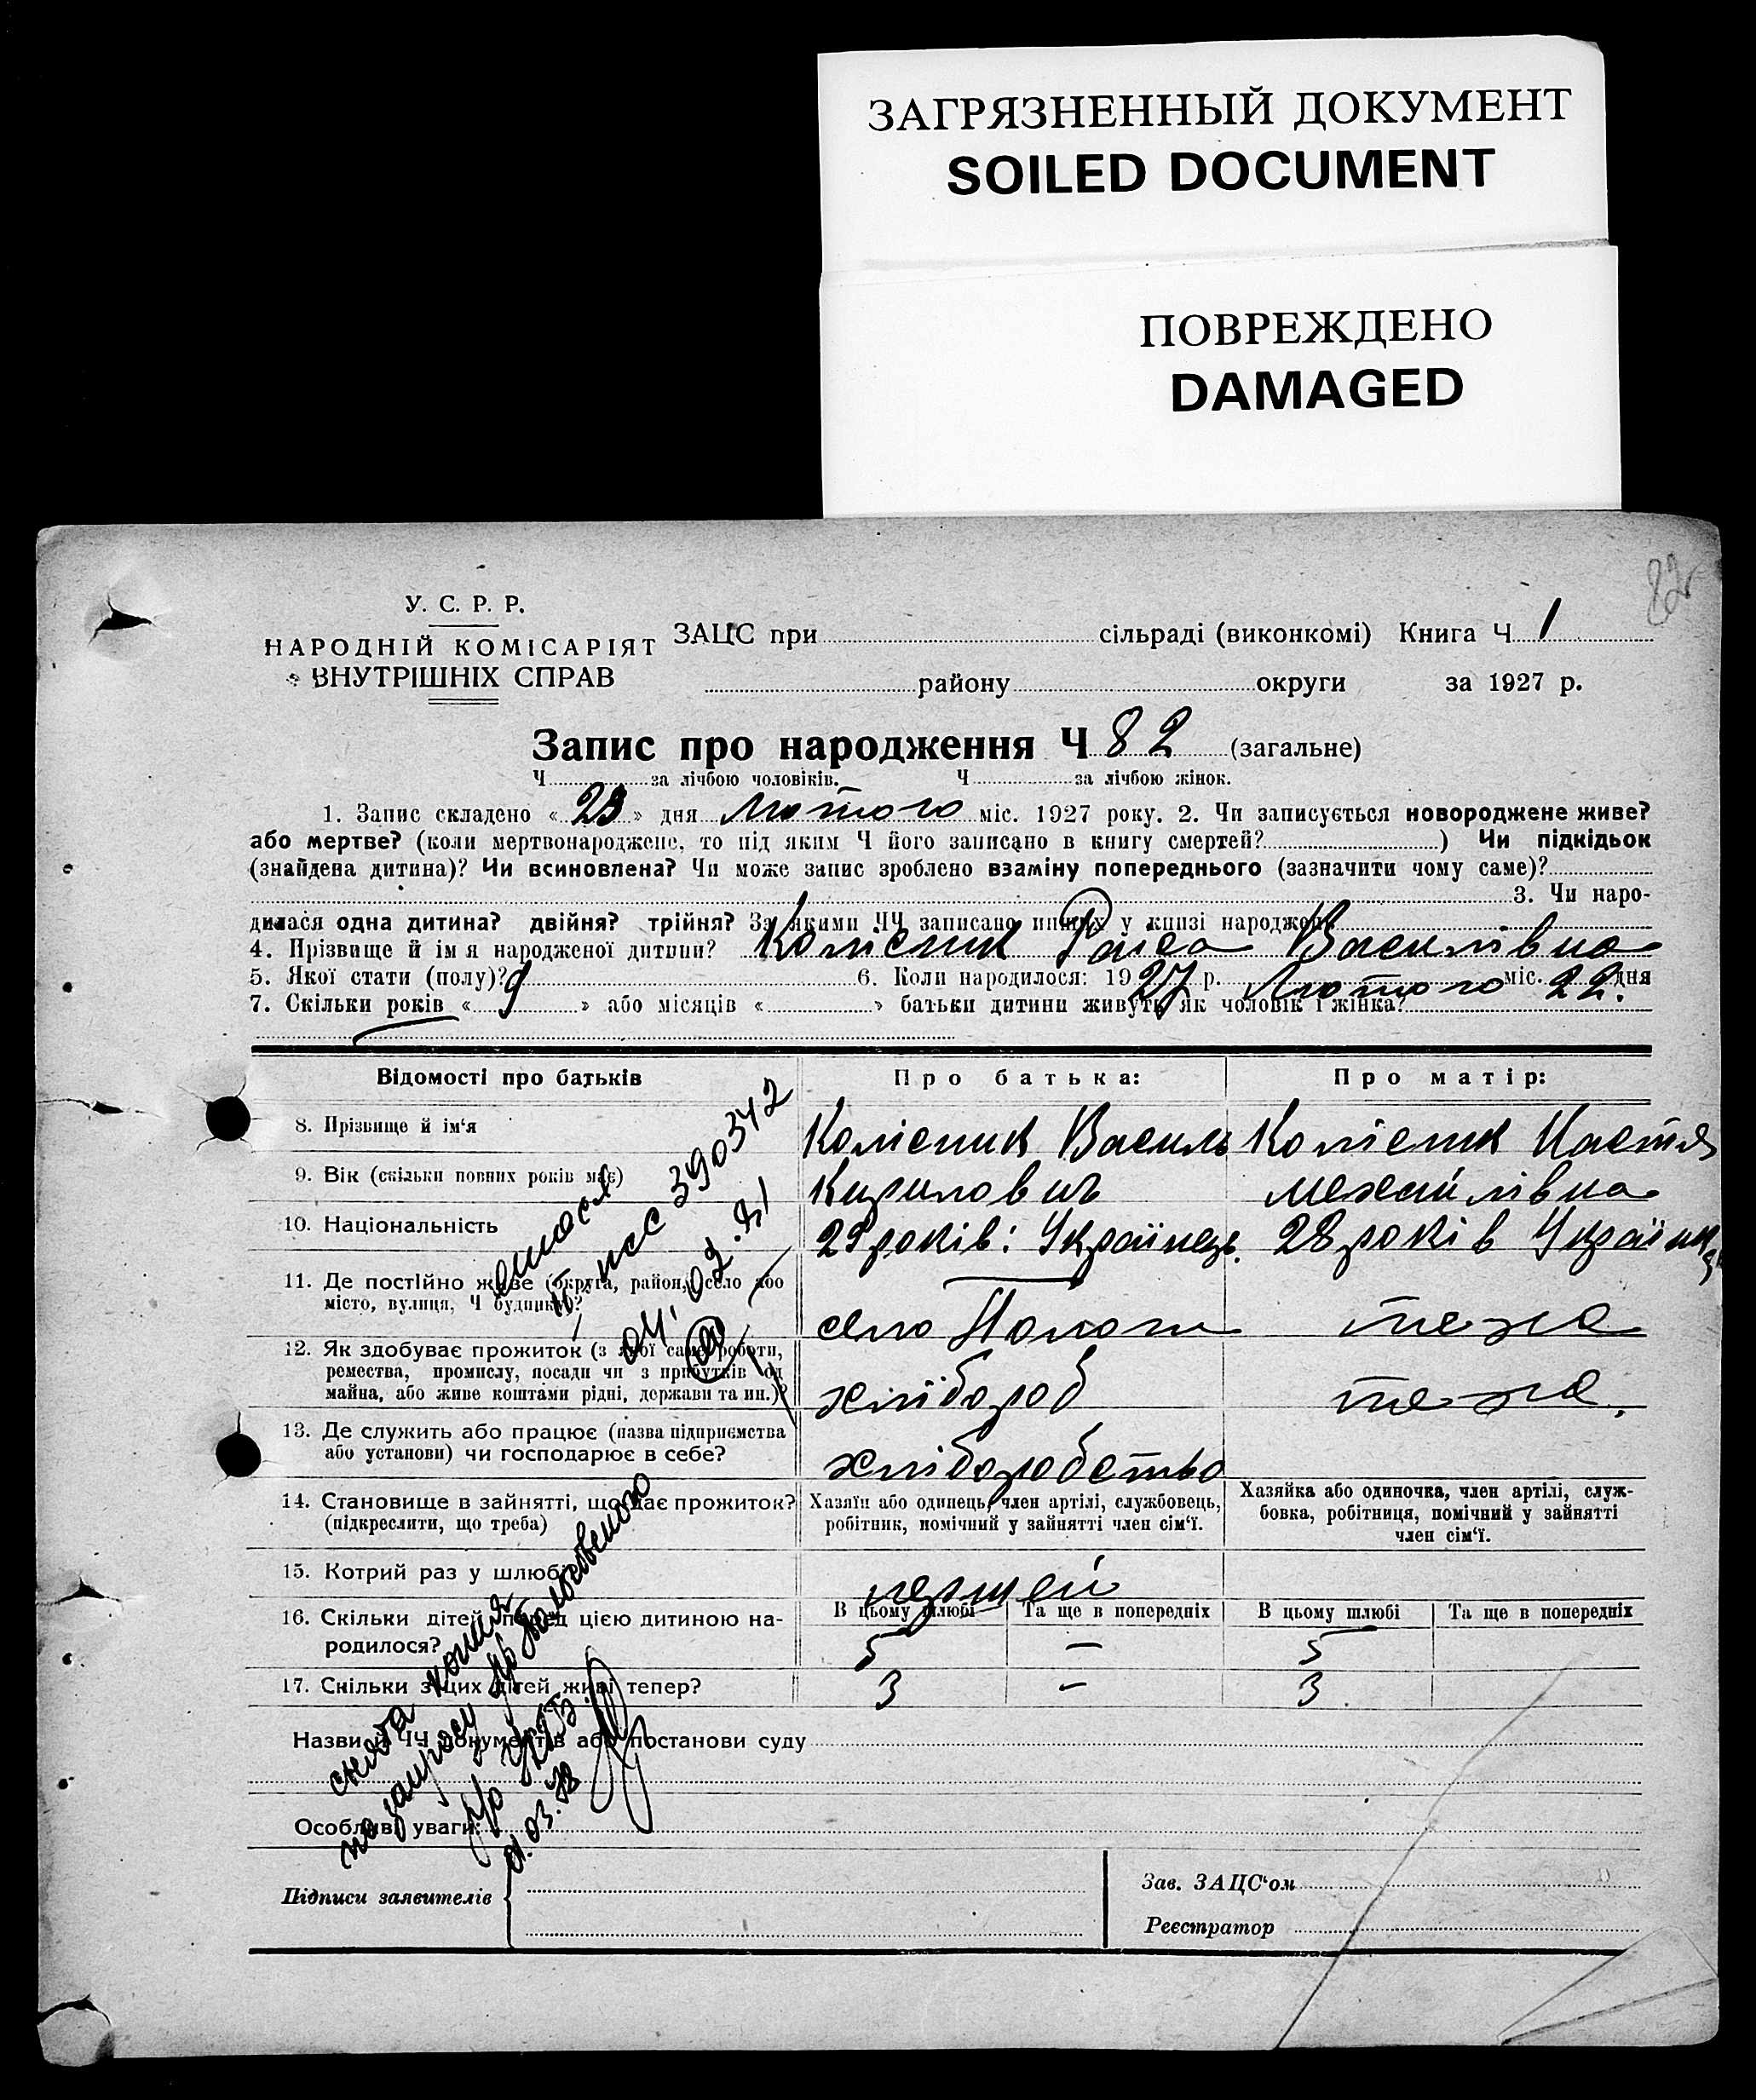 ЗАГРЯЗНЕННЫЙ ДОКУМЕНТ
SOILED DOCUMENT
ПОВРЕЖДЕНО
DAMAGED
82
У. С. Р. Р.
НАРОДНІЙ КОМІСАРІЯТ
ВНУТРІШНІХ СПРАВ
ЗАЦС при сільраді (виконкомі) Книга Ч 1
району округи за 1927 р.
Запис про народження Ч 82 (загальне)
Ч за лічбою чоловіків. Ч за лічбою жінок.
1. Запис складено « 23 » дня Лютого міс. 1927 року. 2. Чи записується новороджене живе?
або мертве? (коли мертвонароджене, то під яким Ч його записано в книгу смертей? ) Чи підкідьок
(знайдена дитина)? Чи всиновлена? Чи може запис зроблено взаміну попереднього (зазначити чому саме)?
3. Чи наро-
дилася одна дитина? двійня? трійня? За якими ЧЧ записано инших у книзі народжень
4. Прізвище й ім я народженої дитини? Колісник Раіса Василівна
5. Якої стати (полу)? 6. Коли народилося: 1927 р. Лютого міс. 22 дня
7. Скільки років « 9 » або місяців « » батьки дитини живуть як чоловік і жінка?
Відомості про батьків Про батька: Про матір:
8. Прізвище й ім'я Колісник Василь Колісник Настя
9. Вік (скільки повних років має) Кирилович Михайлівна
10. Національність 29 років: Українець. 28 років Українка
11. Де постійно живе (округа, район, село або
місто, вулиця, Ч будинку)? село Пологи тежа
12. Як здобуває прожиток (з якої саме роботи,
ремества, промислу, посади чи з прибутків од
майна, або живе коштами рідні, держави та ин.)? хлібороб тежа.
13. Де служить або працює (назва підприємства
або установи) чи господарює в себе? хліборобство
14. Становище в зайнятті, що дає прожиток?
(підкреслити, що треба)
Хазяїн або одинець, член артілі, службовець,
робітник, помічний у зайнятті член сім'ї.
Хазяйка або одиночка, член артілі, служ-
бовка, робітниця, помічний у зайнятті
член сім'ї.
15. Котрий раз у шлюбі першей
16. Скільки дітей перед цією дитиною на-
родилося?
В цьому шлюбі Та ще в попередніх В цьому шлюбі Та ще в попередніх
5 – 5
17. Скільки з цих дітей живі тепер? 3 – 3
Назви й ЧЧ документів або постанови суду
Особливі уваги:
Підписи заявителів
Зав. ЗАЦС'ом
Реєстратор
390342
04.02.81
снята копия
по запросу
01.03.78